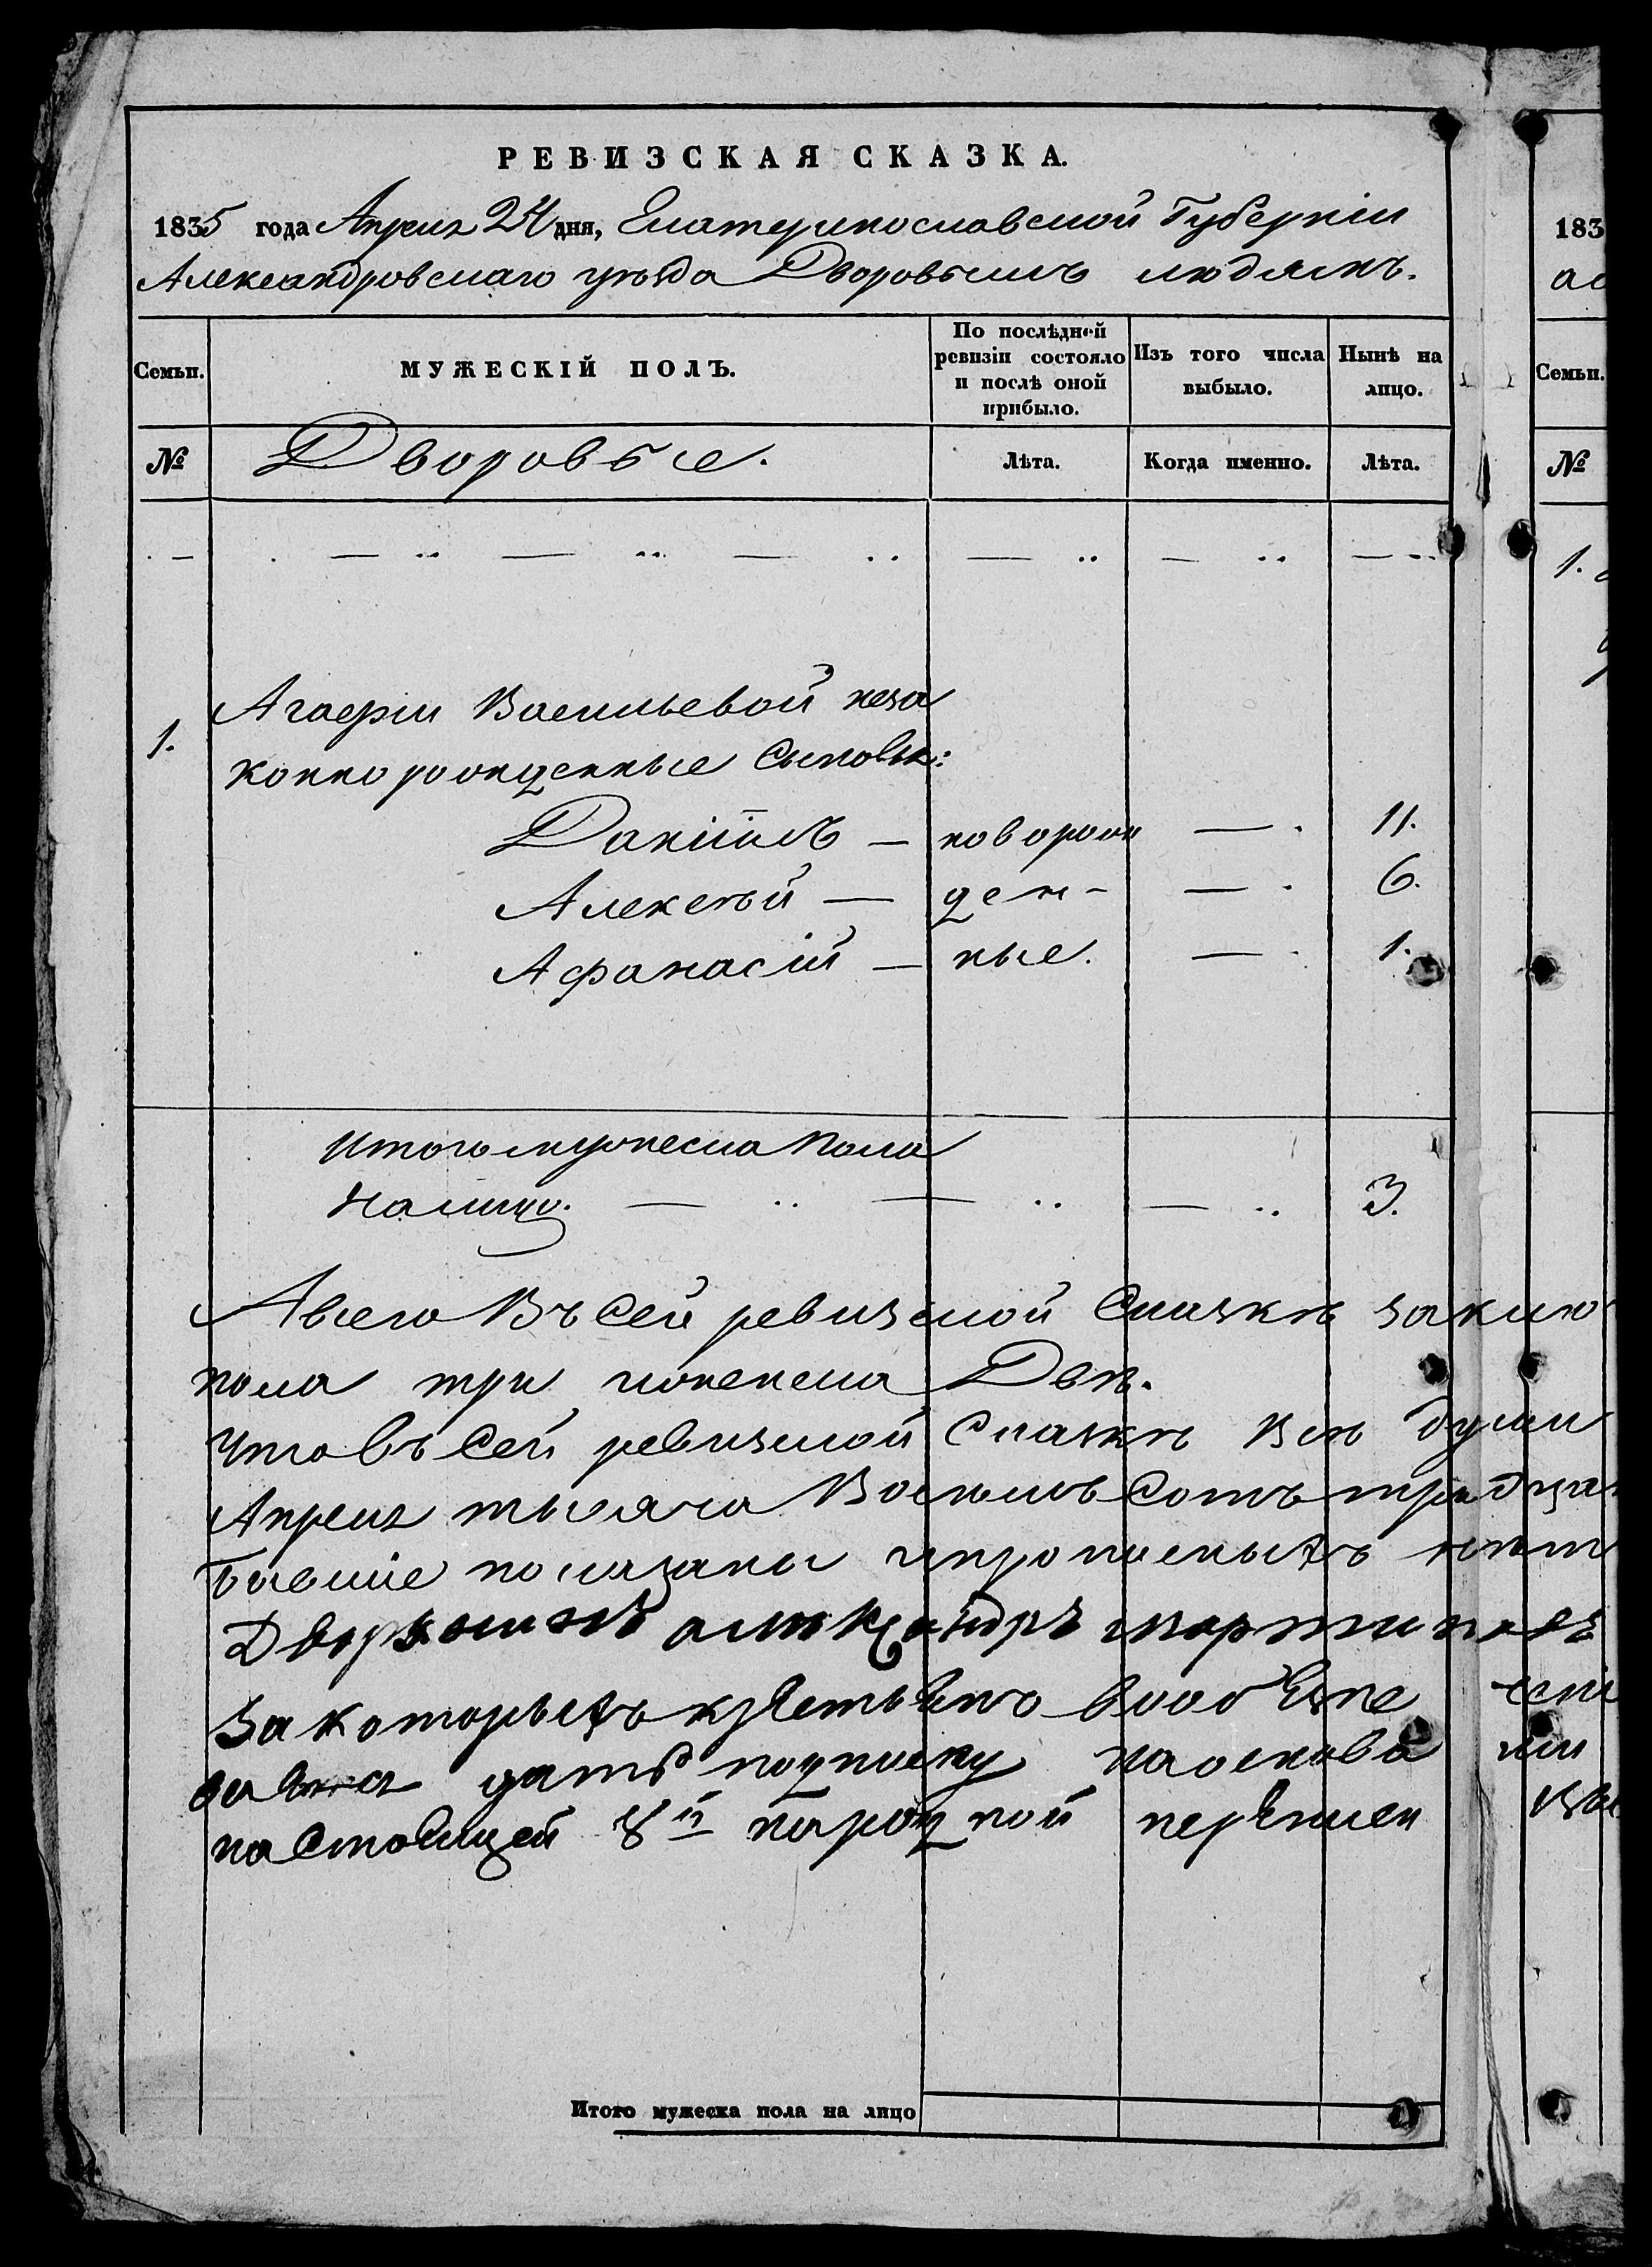 РЕВИЗСКАЯ СКАЗКА.
1835 года Апреля 24 дня, Екатеринославской Губерніи
Александровскаго уѣзда Дворовымъ людямъ.
Семьи. МУЖЕСКІЙ ПОЛЪ. По послѣдней ревизіи состояло и послѣ оной прибыло. Изъ того числа выбыло. Нынѣ на лицо.
№ Дворовые. Лѣта. Когда именно. Лѣта.
1. Агафіи Васильевой неза
конно рожденные Сыновья:
Даніилъ — новорож — . 11.
Алексѣй — ден- — . 6.
Афанасій — ные. — . 1.
Итого мужеска Пола
Налицо. — .. — .. — .. 3.
Авсего Въ Сей ревизской Сказкѣ заклю
пола три женска Двѣ.
Что въ Сей ревизской Сказкѣ Всѣ души
Апреля тысяча Восемь Сотъ тридцат
бавшіе показаны ипрописныхъ нѣт
Дворянинъ александръ мартиновъ
За которыхъ вообще
дать подписку наоснова
настоящей 8й народной перепис
Итого мужеска пола на лицо
183
Семьи.
№
1.